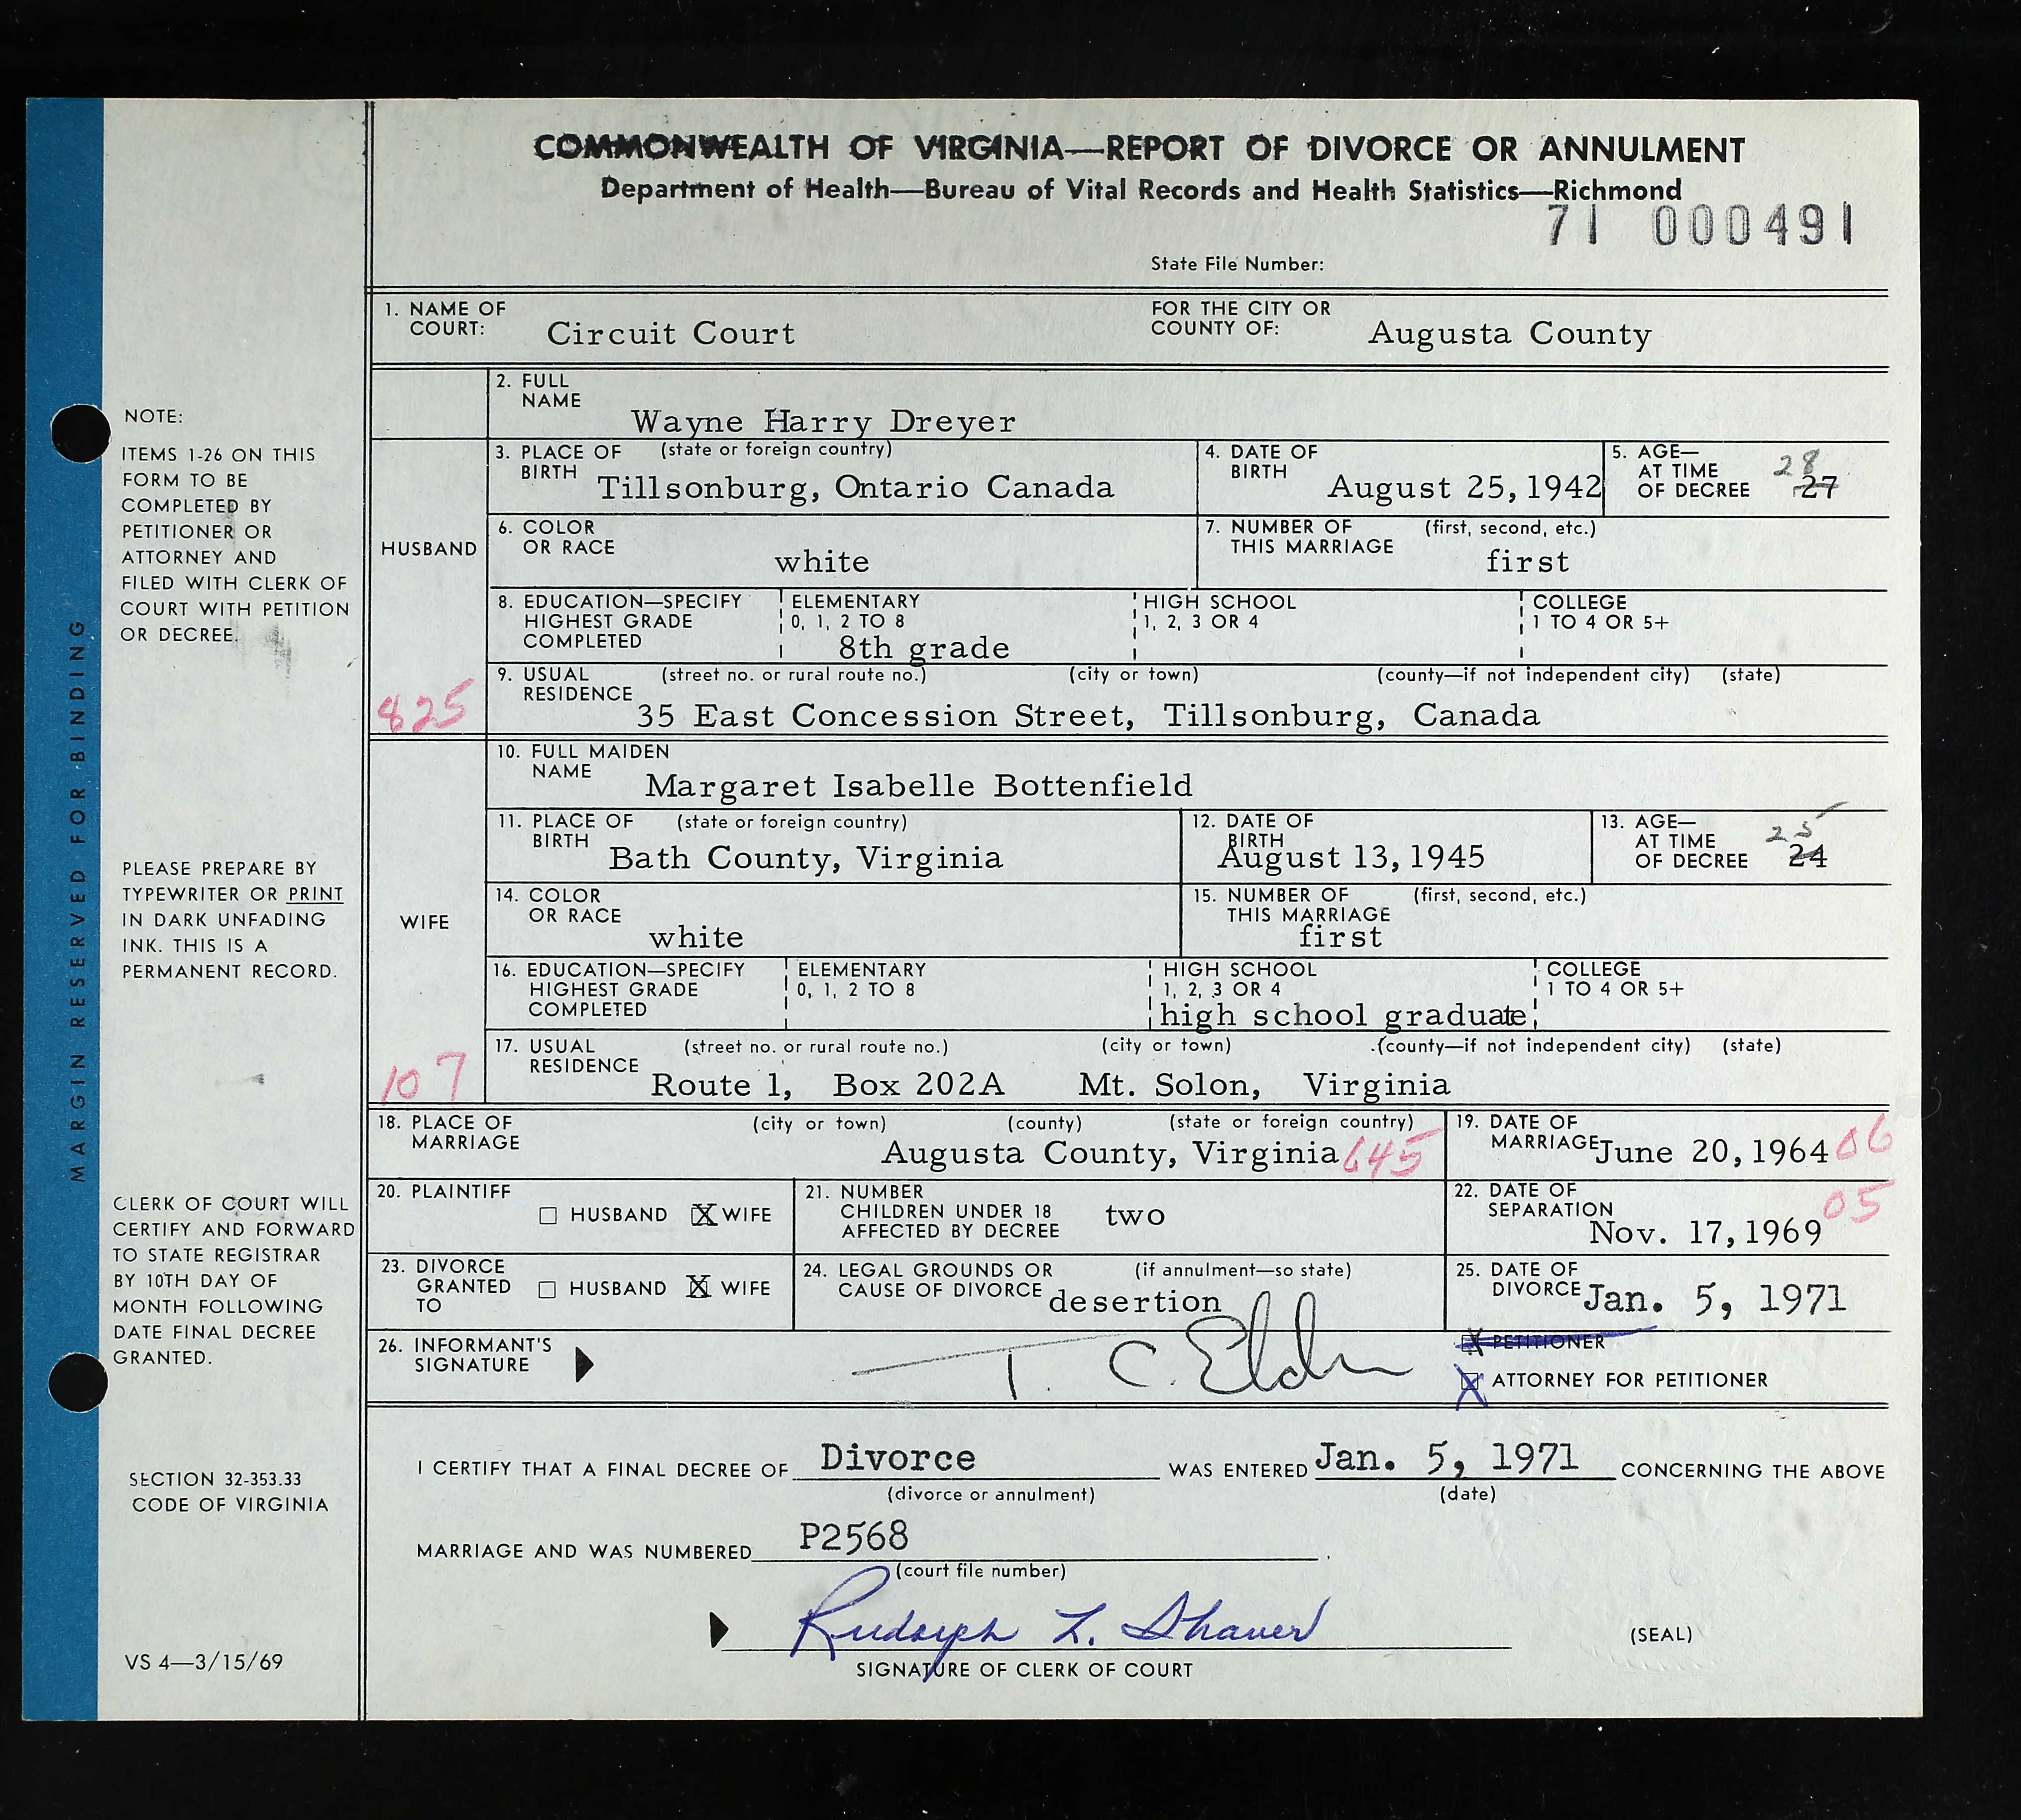 COMMONWEALTH OF VIRGINIA—REPORT OF DIVORCE OR ANNULMENT
Department of Health—Bureau of Vital Records and Health Statistics—Richmond
71 000491
State File Number:
1. NAME OF COURT: Circuit Court FOR THE CITY OR COUNTY OF: Augusta County
HUSBAND
2. FULL NAME Wayne Harry Dreyer
3. PLACE OF BIRTH (state or foreign country) Tillsonburg, Ontario Canada
4. DATE OF BIRTH August 25, 1942
5. AGE— AT TIME OF DECREE 28 27
6. COLOR OR RACE white
7. NUMBER OF THIS MARRIAGE (first, second, etc.) first
8. EDUCATION—SPECIFY HIGHEST GRADE COMPLETED ELEMENTARY 0, 1, 2 TO 8 8th grade HIGH SCHOOL 1, 2, 3 OR 4 COLLEGE 1 TO 4 OR 5+
9. USUAL RESIDENCE (street no. or rural route no.) (city or town) (county—if not independent city) (state)
825 35 East Concession Street, Tillsonburg, Canada
WIFE
10. FULL MAIDEN NAME Margaret Isabelle Bottenfield
11. PLACE OF BIRTH (state or foreign country) Bath County, Virginia
12. DATE OF BIRTH August 13, 1945
13. AGE— AT TIME OF DECREE 25 24
14. COLOR OR RACE white
15. NUMBER OF THIS MARRIAGE (first, second, etc.) first
16. EDUCATION—SPECIFY HIGHEST GRADE COMPLETED ELEMENTARY 0, 1, 2 TO 8 HIGH SCHOOL 1, 2, 3 OR 4 high school graduate COLLEGE 1 TO 4 OR 5+
17. USUAL RESIDENCE (street no. or rural route no.) (city or town) (county—if not independent city) (state)
107 Route 1, Box 202A Mt. Solon, Virginia
18. PLACE OF MARRIAGE (city or town) (county) (state or foreign country) Augusta County, Virginia 645
19. DATE OF MARRIAGE June 20, 1964 06
20. PLAINTIFF HUSBAND X WIFE
21. NUMBER CHILDREN UNDER 18 AFFECTED BY DECREE two
22. DATE OF SEPARATION Nov. 17, 1969 05
23. DIVORCE GRANTED TO HUSBAND X WIFE
24. LEGAL GROUNDS OR CAUSE OF DIVORCE (if annulment—so state) desertion
25. DATE OF DIVORCE Jan. 5, 1971
26. INFORMANT'S SIGNATURE T. C. Elder
X PETITIONER
X ATTORNEY FOR PETITIONER
I CERTIFY THAT A FINAL DECREE OF Divorce WAS ENTERED Jan. 5, 1971 CONCERNING THE ABOVE
(divorce or annulment) (date)
MARRIAGE AND WAS NUMBERED P2568 .
(court file number)
Rudolph L. Shaver
SIGNATURE OF CLERK OF COURT
(SEAL)
MARGIN RESERVED FOR BINDING
NOTE:
ITEMS 1-26 ON THIS
FORM TO BE
COMPLETED BY
PETITIONER OR
ATTORNEY AND
FILED WITH CLERK OF
COURT WITH PETITION
OR DECREE.
PLEASE PREPARE BY
TYPEWRITER OR PRINT
IN DARK UNFADING
INK. THIS IS A
PERMANENT RECORD.
CLERK OF COURT WILL
CERTIFY AND FORWARD
TO STATE REGISTRAR
BY 10TH DAY OF
MONTH FOLLOWING
DATE FINAL DECREE
GRANTED.
SECTION 32-353.33
CODE OF VIRGINIA
VS 4—3/15/69